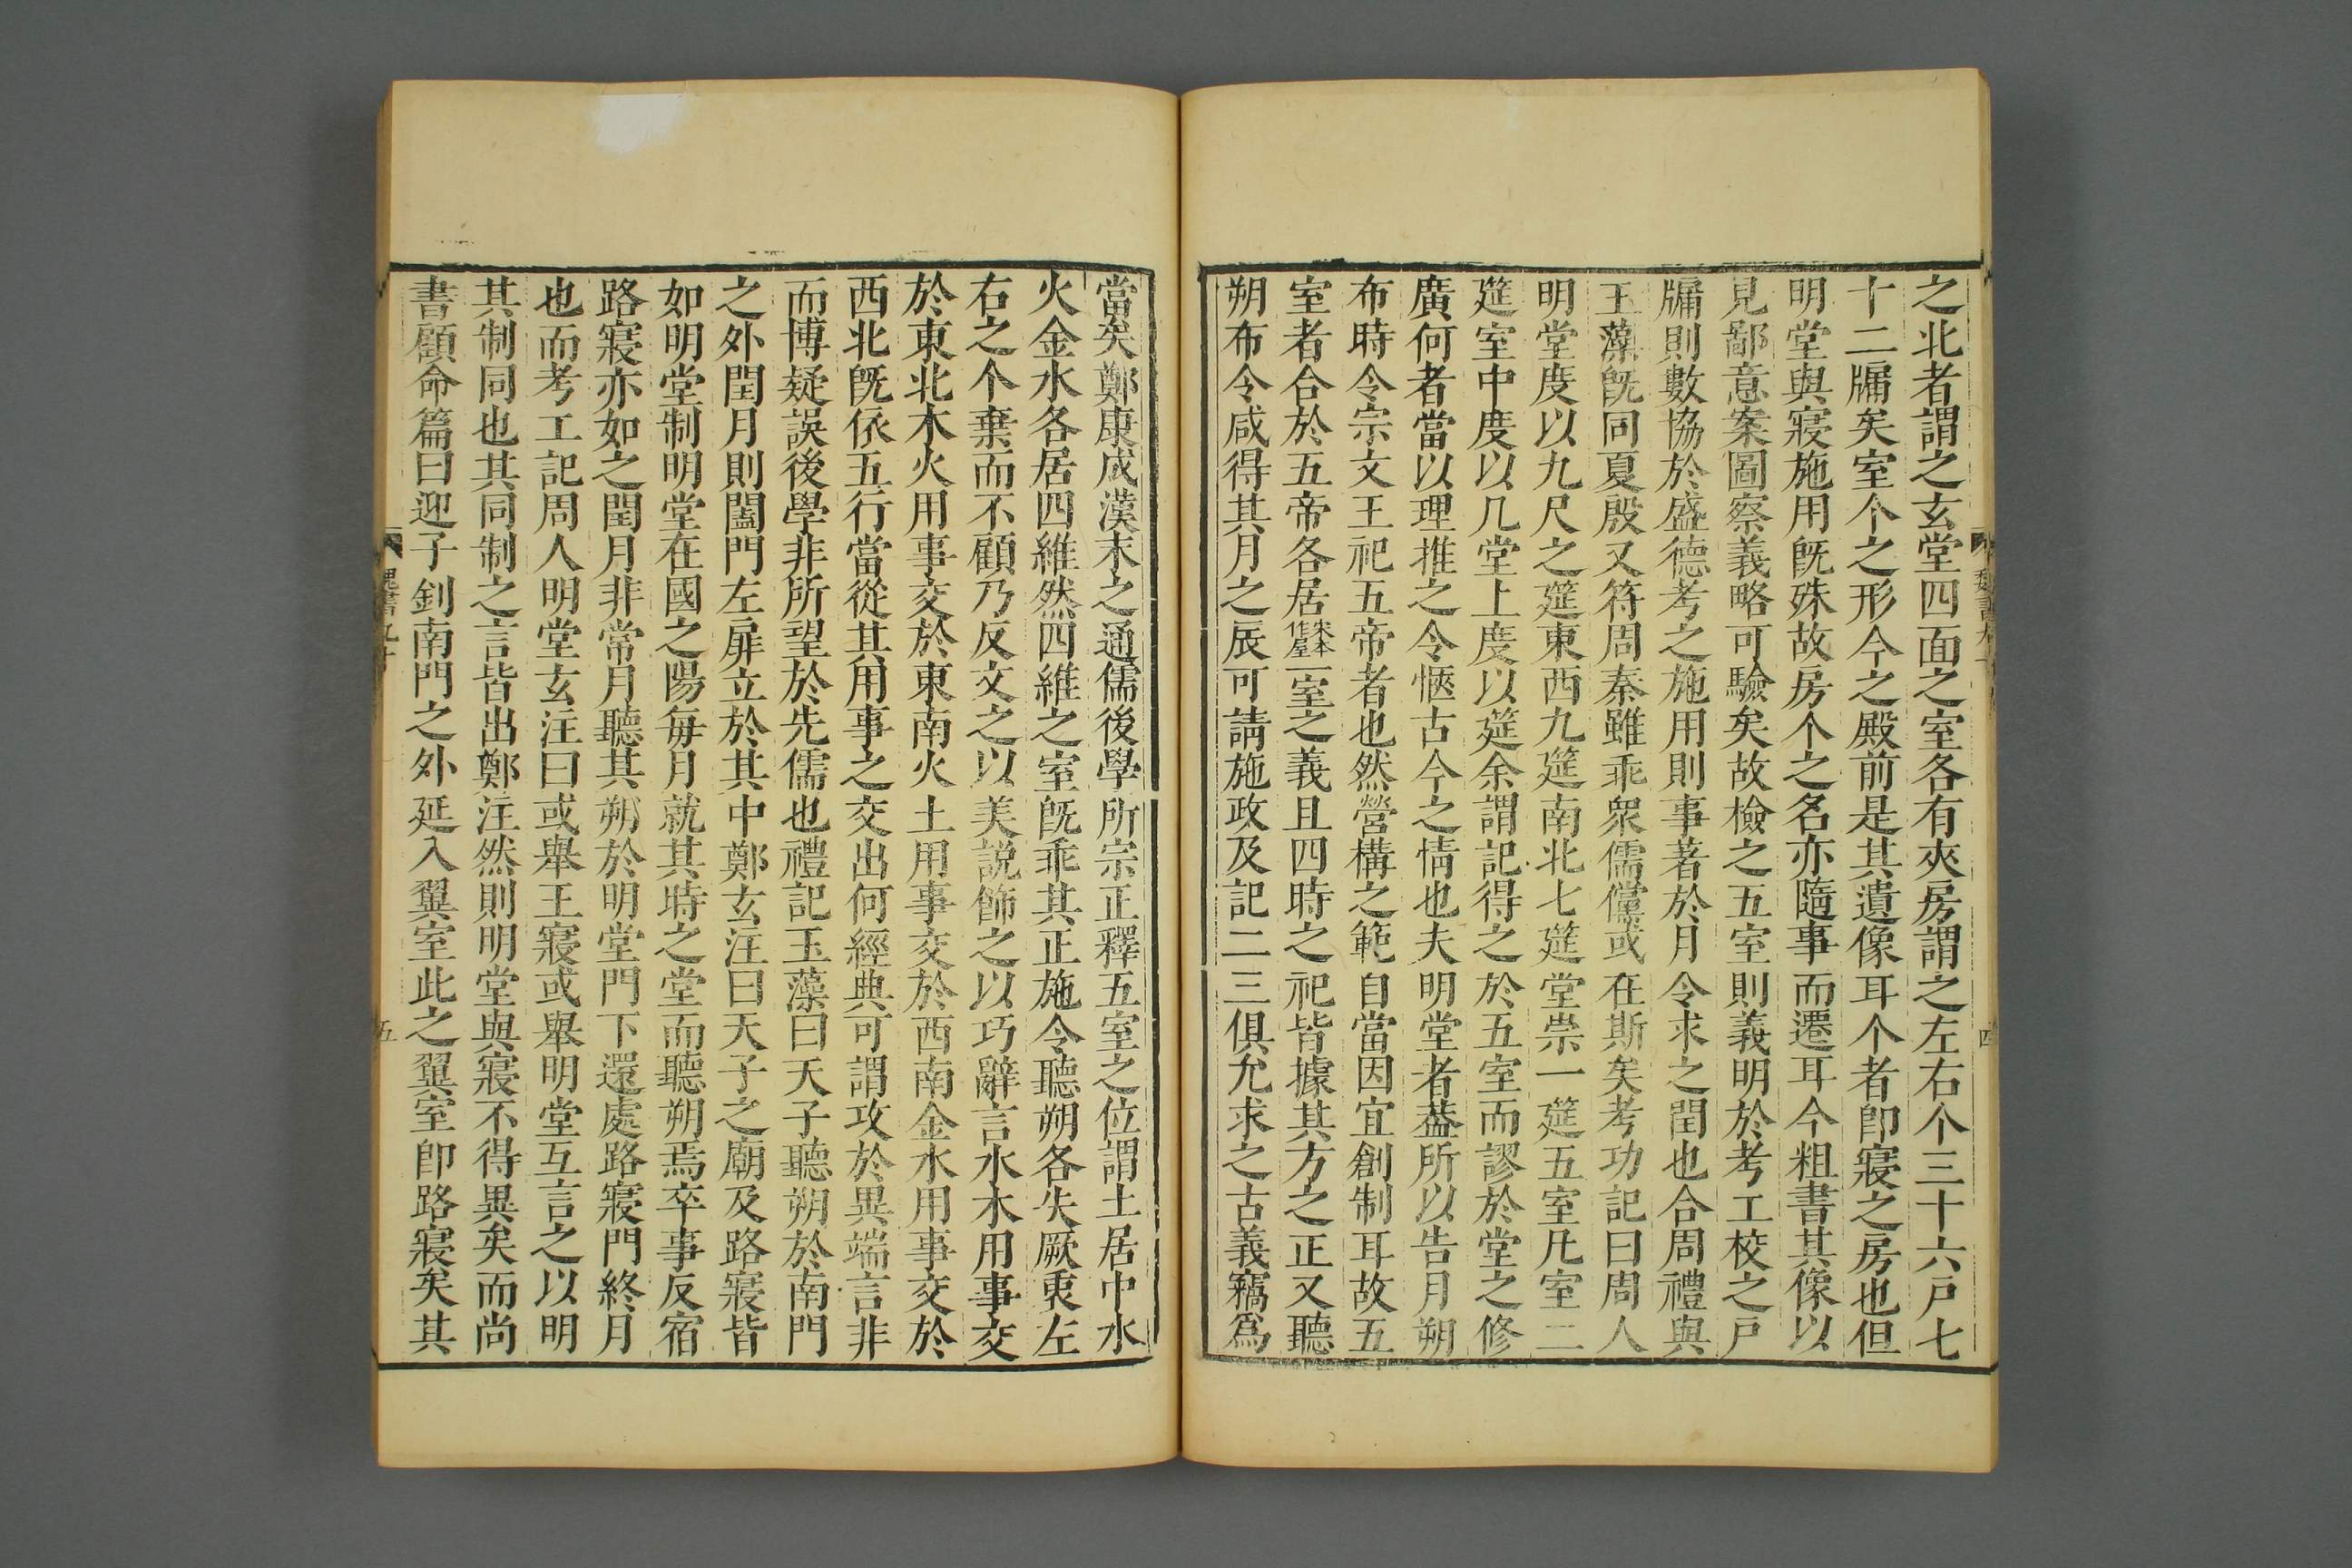 之北者謂之玄堂四面之室各有夾房謂之左右个三十六戸七
十二牖矣室个之形今之殿前是其遺像耳个者卽寢之房也但
明堂與寢施用旣殊故房个之名亦隨事而遷耳今粗書其像以
見鄙意案圖察義略可驗矣故檢之五室則義明於考工校之戸
牖則數協於盛德考之施用則事著於月令求之閏也合周禮與
玉藻旣同夏殷又符周秦雖乖衆儒儻或在斯矣考功記曰周人
明堂度以九尺之筵東西九筵南北七筵堂崇一筵五室凡室二
筵室中度以几堂上度以筵余謂記得之於五室而謬於堂之修
廣何者當以理推之令愜古今之情也夫明堂者蓋所以告月朔
布時令宗文王祀五帝者也然營構之範自當因宜創制耳故五
室者合於五帝各居宋本作屋一室之義且四時之祀皆據其方之正又聽
朔布令咸得其月之辰可請施政及記二三俱允求之古義竊爲
當矣鄭康成漢末之通儒後學所宗正釋五室之位謂土居中水
火金水各居四維然四維之室旣乖其正施令聽朔各失厥衷左
右之个棄而不顧乃反文之以美説飾之以巧辭言水木用事交
於東北木火用事交於東南火土用事交於西南金水用事交於
西北旣依五行當從其用事之交出何經典可謂攻於異端言非
而博疑誤後學非所望於先儒也禮記玉藻曰天子聽朔於南門
之外閏月則闔門左扉立於其中鄭玄注曰天子之廟及路寢皆
如明堂制明堂在國之陽每月就其時之堂而聽朔焉卒事反宿
路寢亦如之閏月非常月聽其朔於明堂門下還處路寢門終月
也而考工記周人明堂玄注曰或舉王寢或舉明堂互言之以明
其制同也其同制之言皆出鄭注然則明堂與寢不得異矣而尚
書顧命篇曰迎子釗南門之外延入翼室此之翼室卽路寢矣其
魏書九十
五
四